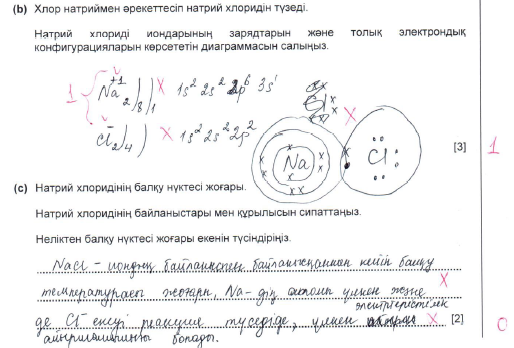 (b) Хлор натриймен әрекеттесіп натрий хлоридін түзеді.
Натрий хлориді иондарының зарядтарын және толық электрондық
конфигурацияларын көрсететін диаграммасын салыңыз.
1 Na⁺¹ 2)8)1 × 1s² 2s² 2p⁶ 3s¹ Cl
Cl⁻ 2)4) × 1s² 2s² 2p²
Na Cl [3] 1
(c) Натрий хлоридінің балқу нүктесі жоғары.
Натрий хлоридінің байланыстары мен құрылысын сипаттаңыз.
Неліктен балқу нүктесі жоғары екенін түсіндіріңіз.
NaCl - иондық байланыспен байланысқаннан кейін балқу
температурасы жоғары, Na-дің үлкен және
де Cl⁻ енуі түседіде, үлкен [2] 0
болады.